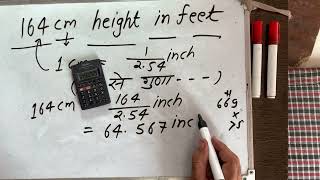 164 cm height in feet
1 cm = 1/2.54 inch
से गुणा - - - )
164 cm = 164/2.54 inch
= 64.567 inc
669
x
>5